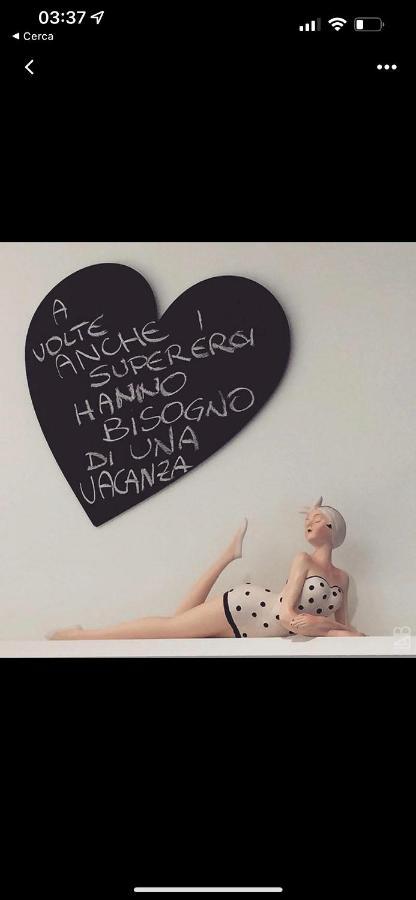 03:37
Cerca
A
VOLTE
ANCHE I
SUPEREROI
HANNO
BISOGNO
DI UNA
VACANZA